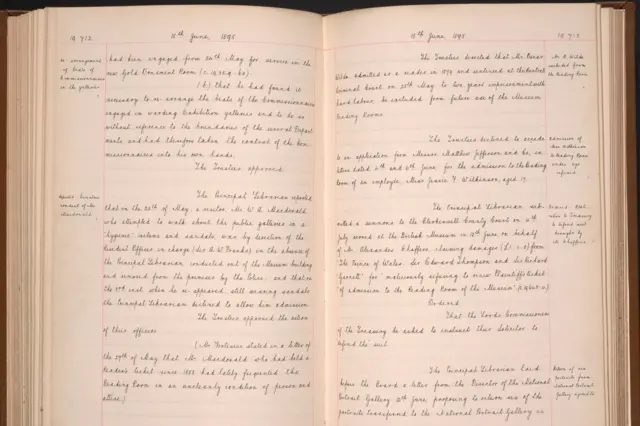 19712
15th June, 1895
re arrangement
of beats of
Commissionaires
in the galleries
had been engaged from 20th May for service in the
new Gold Ornament Room
(b) that he had found it
necessary to re arrange the beats of the Commissionaires
engaged in warding Exhibition galleries and to do so
without reference to the boundaries of the several Depart-
ments and had therefore taken the control of the Com-
missionaires into his own hands.
The Trustees approved
conduct of Mr
Macdonald
The Principal Librarian reported
that on the 28th of May, a visitor, Mr W. A. Macdonald
who attempted to walk about the public galleries in a
"hygienic" costume and sandals, was by direction of the
Resident Officer in charge in the absence of
the Principal Librarian conducted out of the Museum building
and removed from the premises by the Police: and that on
the 29th inst. when he re appeared, still wearing sandals
the Principal Librarian declined to allow him admission
The Trustees approved the action
of their officers
(Mr Fortescue stated in a letter of
the 29th of May that Mr Macdonald who had held a
Readers ticket since 1888 had lately frequented the
Reading Room in an uncleanly condition of person and
attire.)
15th June, 1895
19713
Mr O. Wilde
excluded from
the Reading Room
The Trustees directed that Mr Oscar
Wilde, admitted as a reader in 1879 and sentenced at the Central
Criminal Court on 25th May to two years imprisonment with
hard labour, be excluded from future use of the Museum
Reading Room
Admission of
Miss Wilkinson
to Reading Room
under age
refused
The Trustees declined to accede
to an application from Messrs Matthew Jefferson and
letters dated 4th and 6th June for the admission to the Reading
Room of an employee, Miss Jessie Wilkinson, aged 17.
The Principal Librarian sub-
mitted a summons to the Clerkenwell County Court on
July served at the British Museum on 12th June, on behalf
of Mr Alexander Chaffers, claiming damages from
The Prince of Wales Sir Edward Thompson and Sir Richard
Garnett for "maliciously refusing to renew Plaintiff's ticket
"of admission to the Reading Room of the Museum"
Ordered
That the Lords Commissioners
of the Treasury be asked to instruct their Solicitor to
defend the suit
to Treasury
to defend suit
brought by
A. Chaffers
The Principal Librarian laid
before the Board a letter from the Director of the National
Portrait Gallery June, proposing to return six of the
portraits transferred to the National Portrait Gallery in
Return of six
portraits from
National Portrait
Gallery agreed to